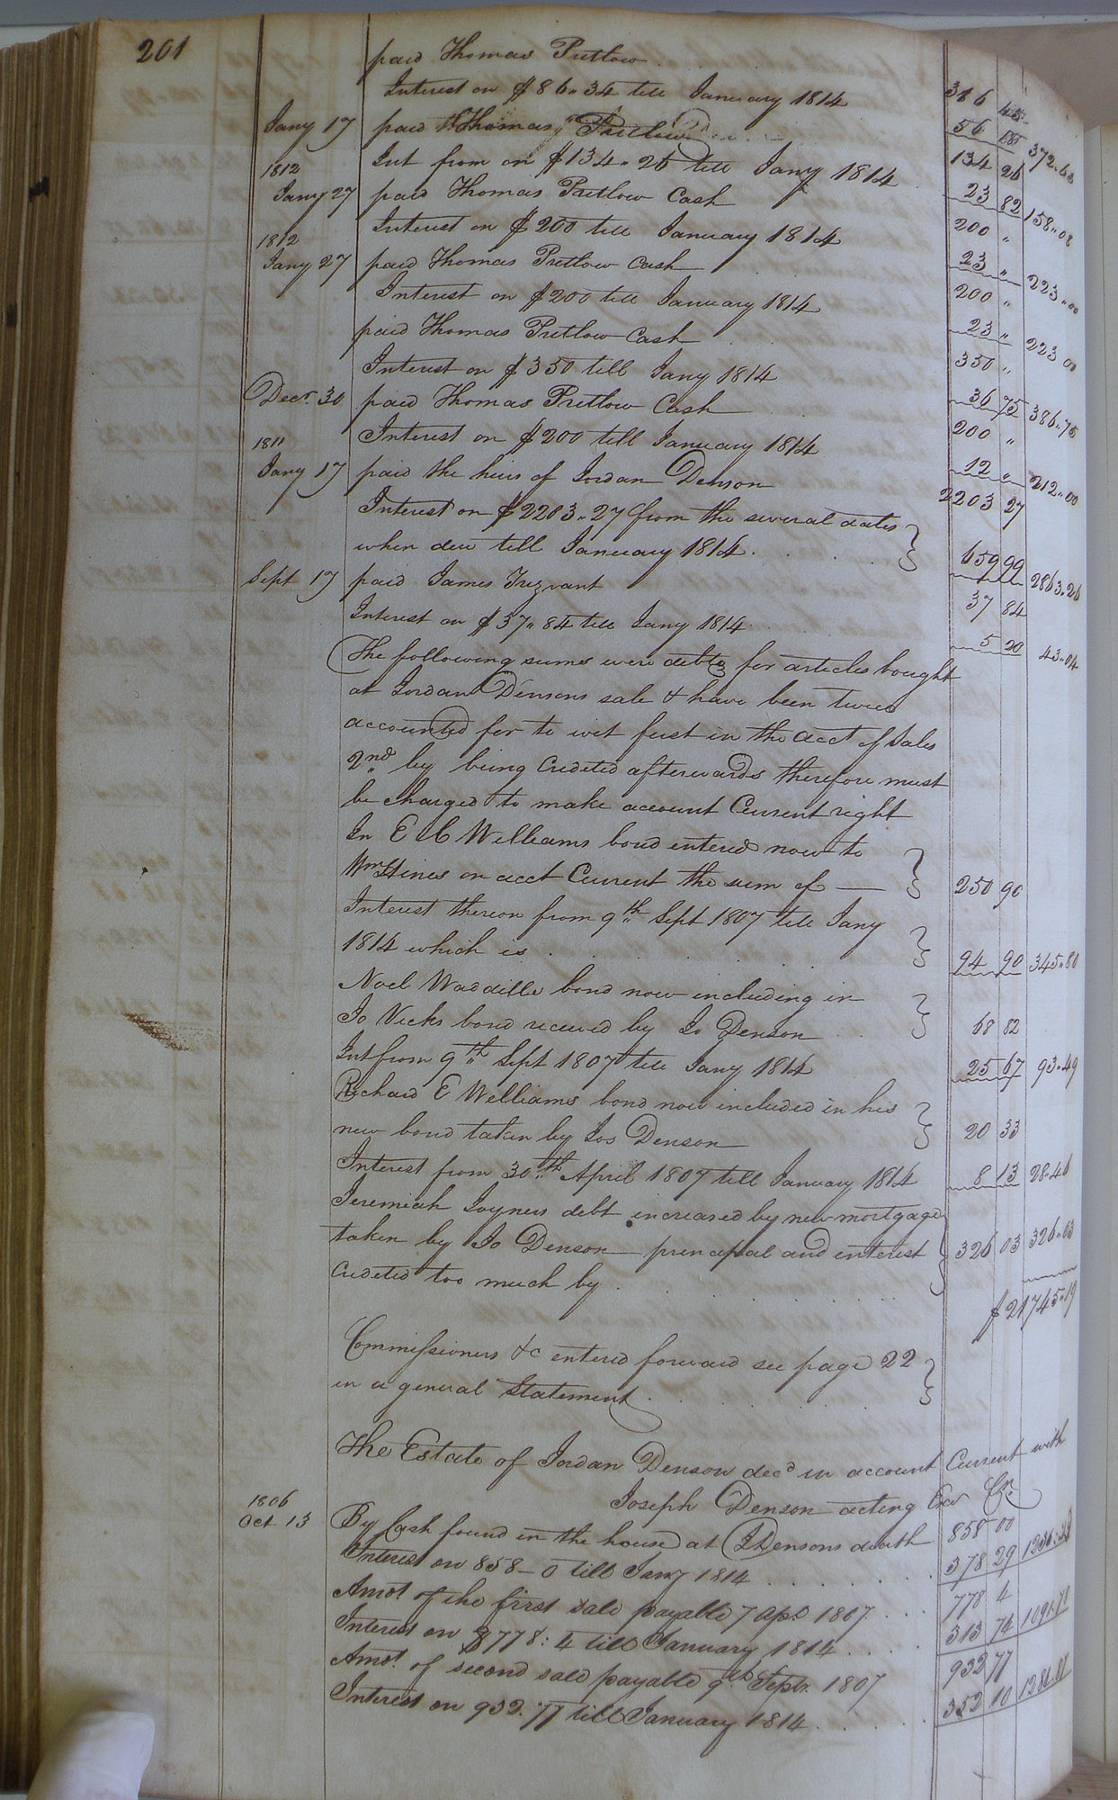 201
paid Thomas Pretlow
Interest on $86.34 till January 1814 316
Jany 17 paid Thomas Pretlow 56 372.60
Int from on $134.26 till Jany 1814 134 26
1812
Jany 27 paid Thomas Pretlow Cash 23 82 158.08
Interest on $200 till January 1814 200 "
1812
Jany 27 paid Thomas Pretlow Cash 23 " 223.00
Interest on $200 till January 1814 200 "
paid Thomas Pretlow Cash 23 " 223 00
Interest on $350 till Jany 1814 350 "
Decr. 30 paid Thomas Pretlow Cash 36 75 386.75
Interest on $200 till January 1814 200 "
1811
Jany 17 paid the heirs of Jordan Denson 12 " 212.00
Interest on $2203.27 from the several dates 2203 27
when due till January 1814 659 99 2863.26
Sept 17 paid James Trezvant 37 84
Interest on $37.84 till Jany 1814 5 20 43.04
The following sums were debts for articles bought
at Jordan Densons sale & have been twice
accounted for to wit first in the acct of Sales
2nd by being Credited afterwards therefore must
be charged to make account Current right
In E C Williams bond entered now to
Wm Hines on acct Current the sum of 250 90
Interest thereon from 9th Sept 1807 till Jany
1814 which is 94 90 345.80
Noel Waddills bond now including in
Jo Vicks bond received by Jo Denson 68 82
Int from 9th Sept 1807 till Jany 1814 25 67 93.49
Richard E Williams bond now included in his
new bond taken by Jos Denson 20 33
Interest from 30th April 1807 till January 1814 8 13 28.46
Jeremiah Joyners debt increased by new mortgage
taken by Jo Denson principal and interest 326 03 326.03
Credited too much by
$21745.19
Commissioners &c entered forward see page 22
in a general Statement
The Estate of Jordan Denson decd in account Current with
Joseph Denson acting Exr Cr.
1806
Oct 13 By Cash found in the house at JDensons death 858 00
Interest on 858-0 till Jany 1814 378 29
Amot. of the first sale payable 7 Apl 1807 778 4
Interest on $778:4 till January 1814 313 74
Amot. of second sale payable 9th Septr. 1807 932 77
Interest on 932.77 till January 1814 352 10